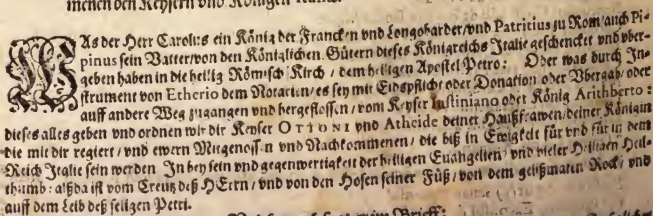 menen den Keysern vnd Königen
WAs der Herr Carolus ein König der Francken vnd Longobarder/vnd Patritius zu Rom/auch Pi-
pinus sein Vatter/von den Königlichen Gütern dieses Königreichs Italie geschencket vnd vber-
geben haben in die heilig Römisch Kirch / dem heiligen Apostel Petro: Oder was durch In-
strument von Etherio dem Notarien/es sey mit Eidspflicht oder Donation oder Vbergab/oder
auff andere Weg zugangen vnd hergeflossen/vom Keyser Iustiniano oder König Arithberto:
dieses alles geben vnd ordnen wir dir Keyser OTTONI vnd Atheide deiner Haußfrawen/deiner Königin
die mit dir regiert/vnd ewern Mitgenossen vnd Nachkommenen / die biß in Ewigkeit für vnd für in dem
Reich Italie sein werden In beysein vnd gegenwertigkeit der heiligen Euangelien/vnd vieler Heiligen Heil-
thümb: alßda ist vom Creutz deß HErrn/vnd von den Hosen seiner Füß/von dem gelißmaten Rock/vnd
auff dem Leib deß seligen Petri.
Brieff: